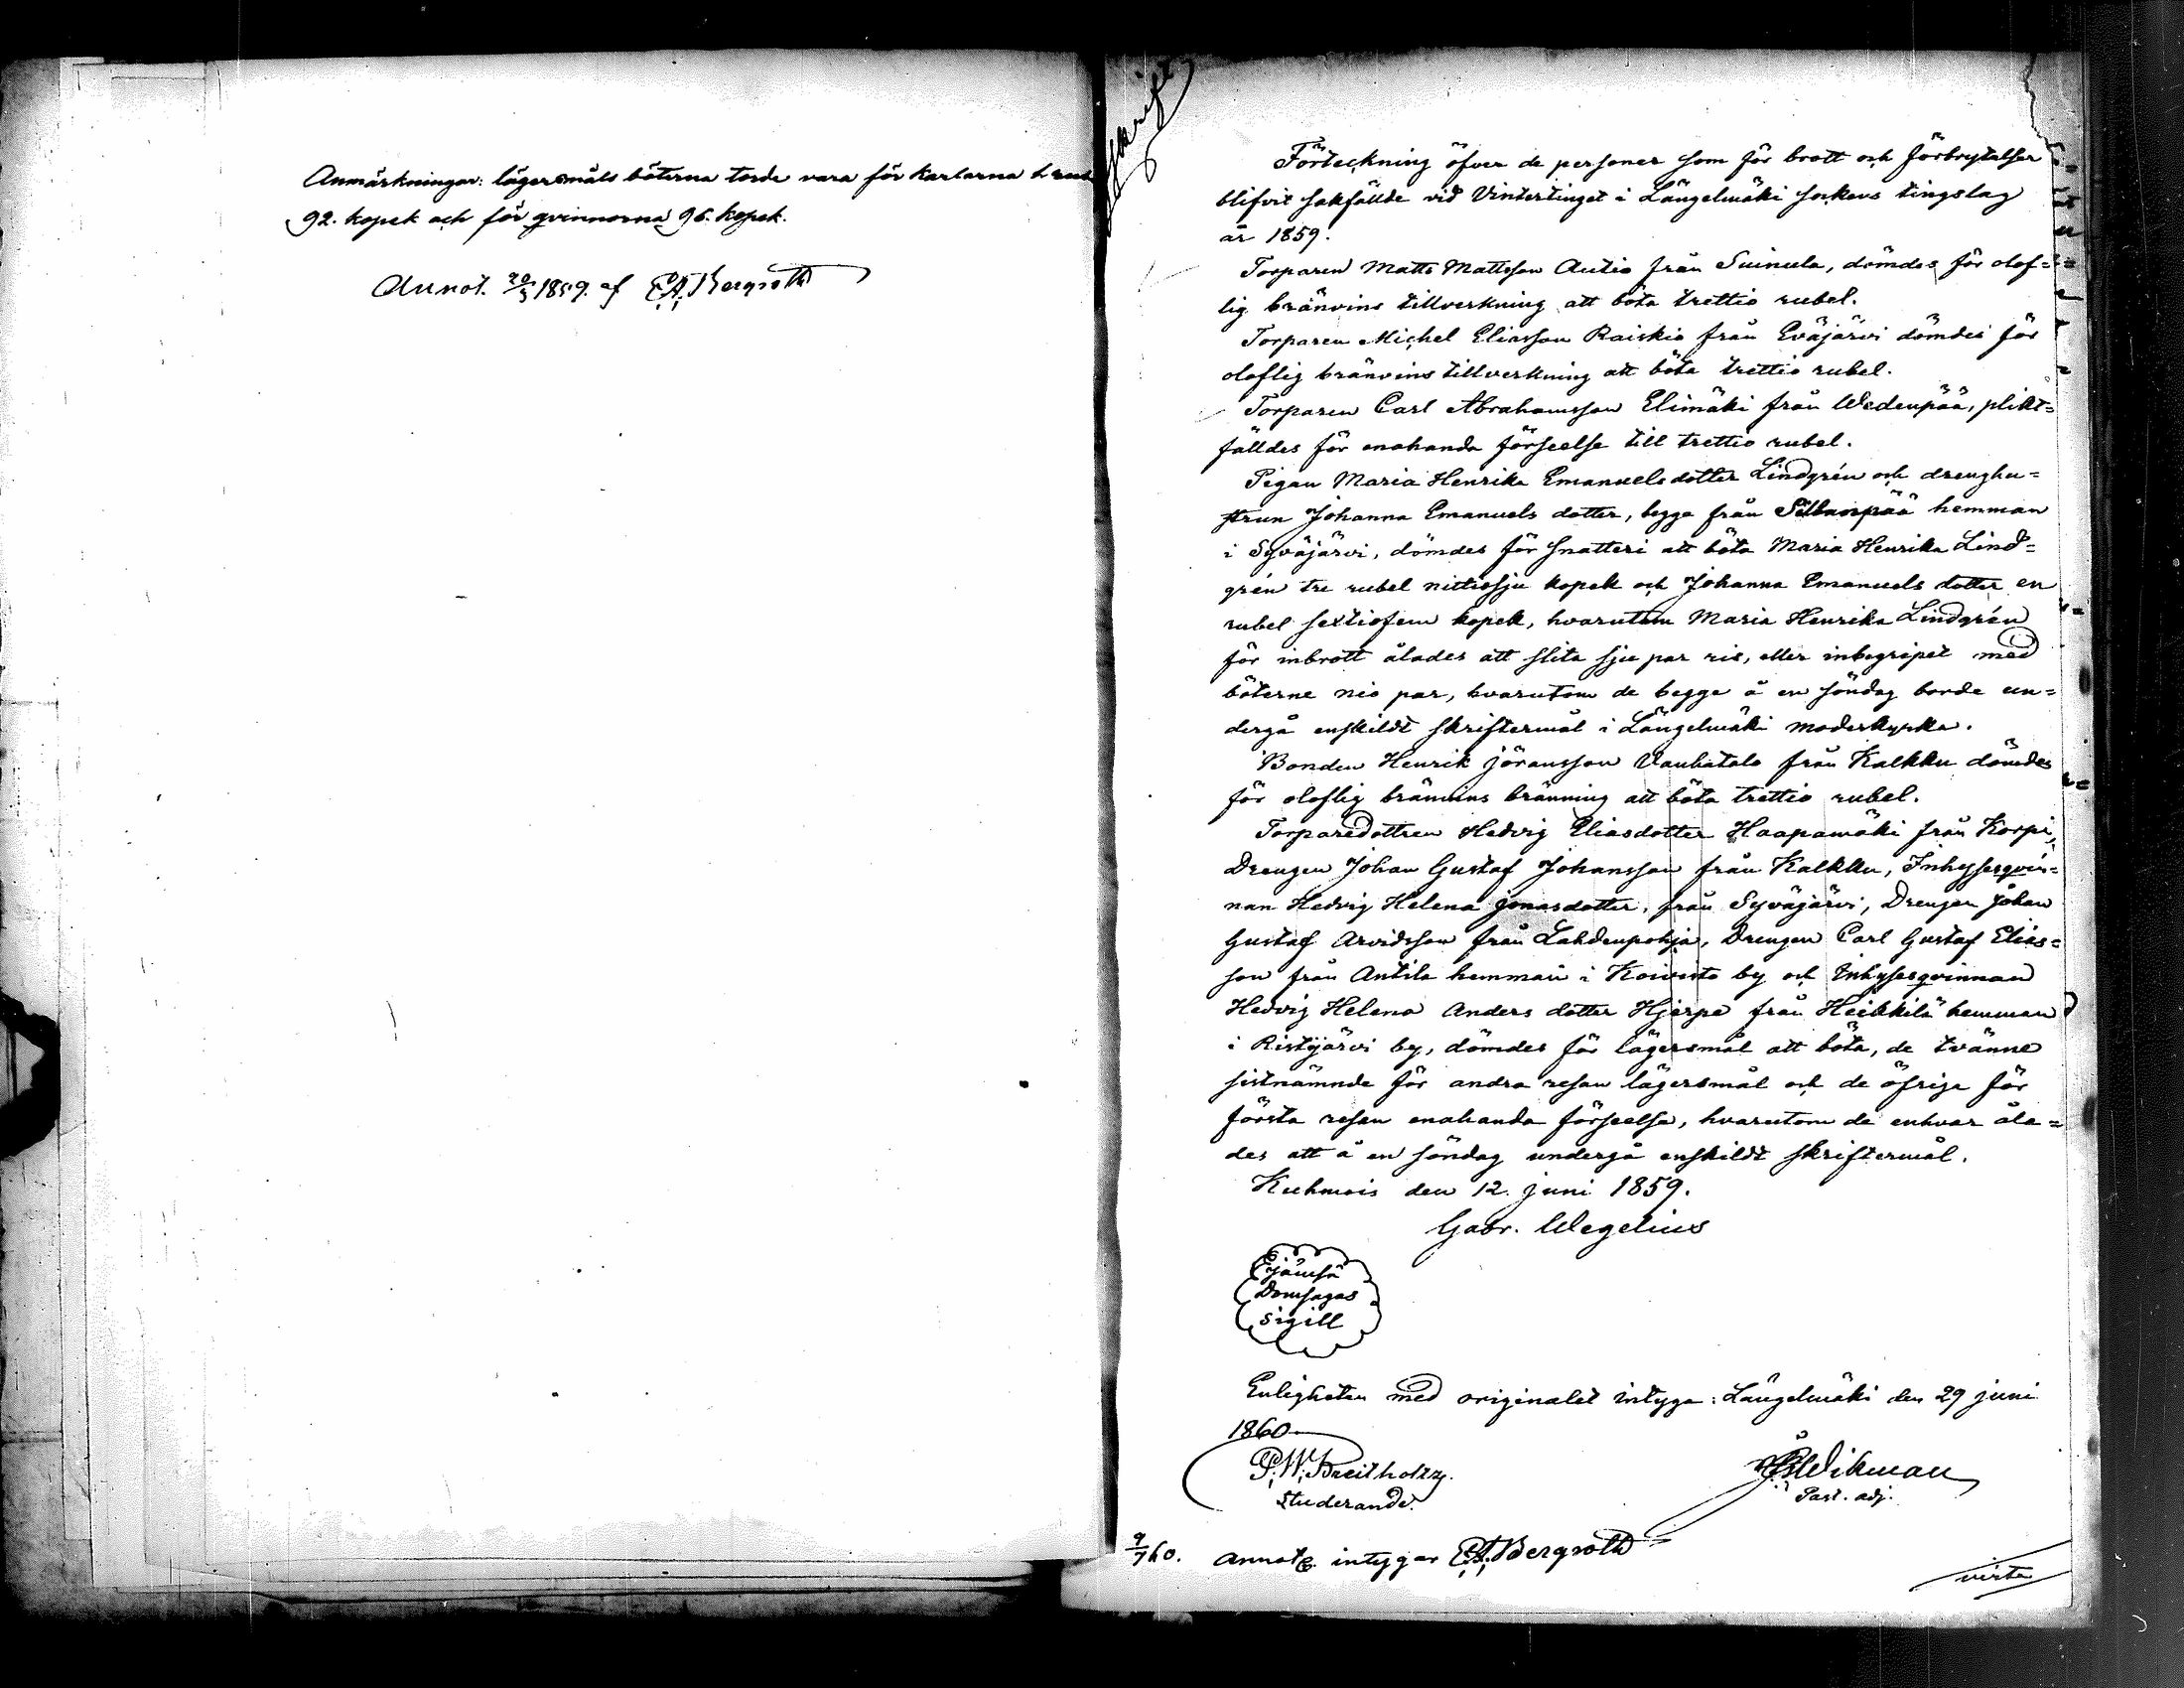 Anmärkningar: lägersmåls böterna torde vara för karlarna 1 rub
92. kopek och för qvinnorna 96. kopek.
Annot. 20/3 1859. af E.A. Bergroth
Förteckning öfver de personer som för brott och förbrytelser
blifvit sakfällde vid Vintertinget i Längelmäki sockens tingslag
år 1859.
Torparen Matts Mattsson Autio från Suinula, dömdes för olof=
lig bränvins tillverkning att böta trettio rubel.
Torparen Michel Eliasson Raiskio från Eväjärvi dömdes för
oloflig bränvins tillverkning att böta trettio rubel.
Torparen Carl Abrahamsson Elimäki från Wedenpää, plikt=
fälldes för enahanda förseelse till trettio rubel.
Pigan Maria Henrika Emanuelsdotter Lindgrén och drenghu=
strun Johanna Emanuels dotter, begge från hemman
i Syväjärvi, dömdes för snatteri att böta Maria Henrika Lind=
grén tre rubel nittiosju kopek och Johanna Emanuels dotter en
rubel sextiofem kopek, hvarutom Maria Henrika Lindgrén
för inbrott ålades att slita sju par ris, eller inbegripet med
böterne nio par, hvarutom de begge å en söndag borde un=
dergå enskildt skriftermål i Längelmäki moderkyrka.
Bonden Henrik Jöransson Vanhatalo från Kalkku dömdes
för oloflig bränvins bränning att böta trettio rubel.
Torparedottren Hedvig Eliasdotter Haapamäki från Korpi,
Drengen Johan Gustaf Johansson från Kalkku, Inhysesqvin=
nan Hedvig Helena Jonasdotter, från Syväjärvi, Drengen Johan
Gustaf Arvidsson från Lahdenpohja, Drengen Carl Gustaf Elias=
son från Antila hemman i Koivisto by och Inhysesqvinnan
Hedvig Helena Anders dotter Hjerpe från Heikkilä hemman
i Ristijärvi by, dömdes för lägersmål att böta, de tvänne
sistnämnde för andra resan lägersmål och de öfrige för
första resan enahanda förseelse, hvarutom de enhvar åla=
des att å en söndag undergå enskildt skriftermål.
Kuhmois den 12. juni 1859.
Gabr. Wegelius
Jämsä
Domsagas
Sigill
Enligheten med originalet intyga: Längelmäki den 29 juni
1860
P.W. Breitholtz.
Studerande.
Wikman
Past. adj.
9/7 60. Annot intygar E.A. Bergroth